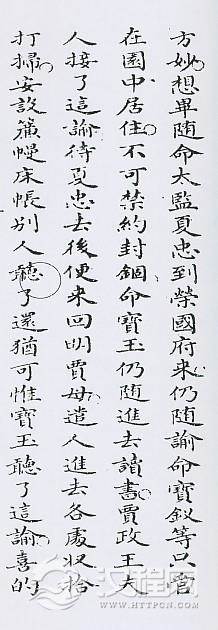 方妙想畢随命太監夏忠到榮國府来仍随諭命寶釵等只管
在園中居住不可禁約封錮命寶玉仍随進去讀書賈政王夫
人接了這諭待夏忠去後便来回明賈母遣人進去各處収拾
打掃安設簾幔床帳别人聽了還猶可惟寶玉聽了這諭喜的
汉程网
WWW.HTTPCN.COM